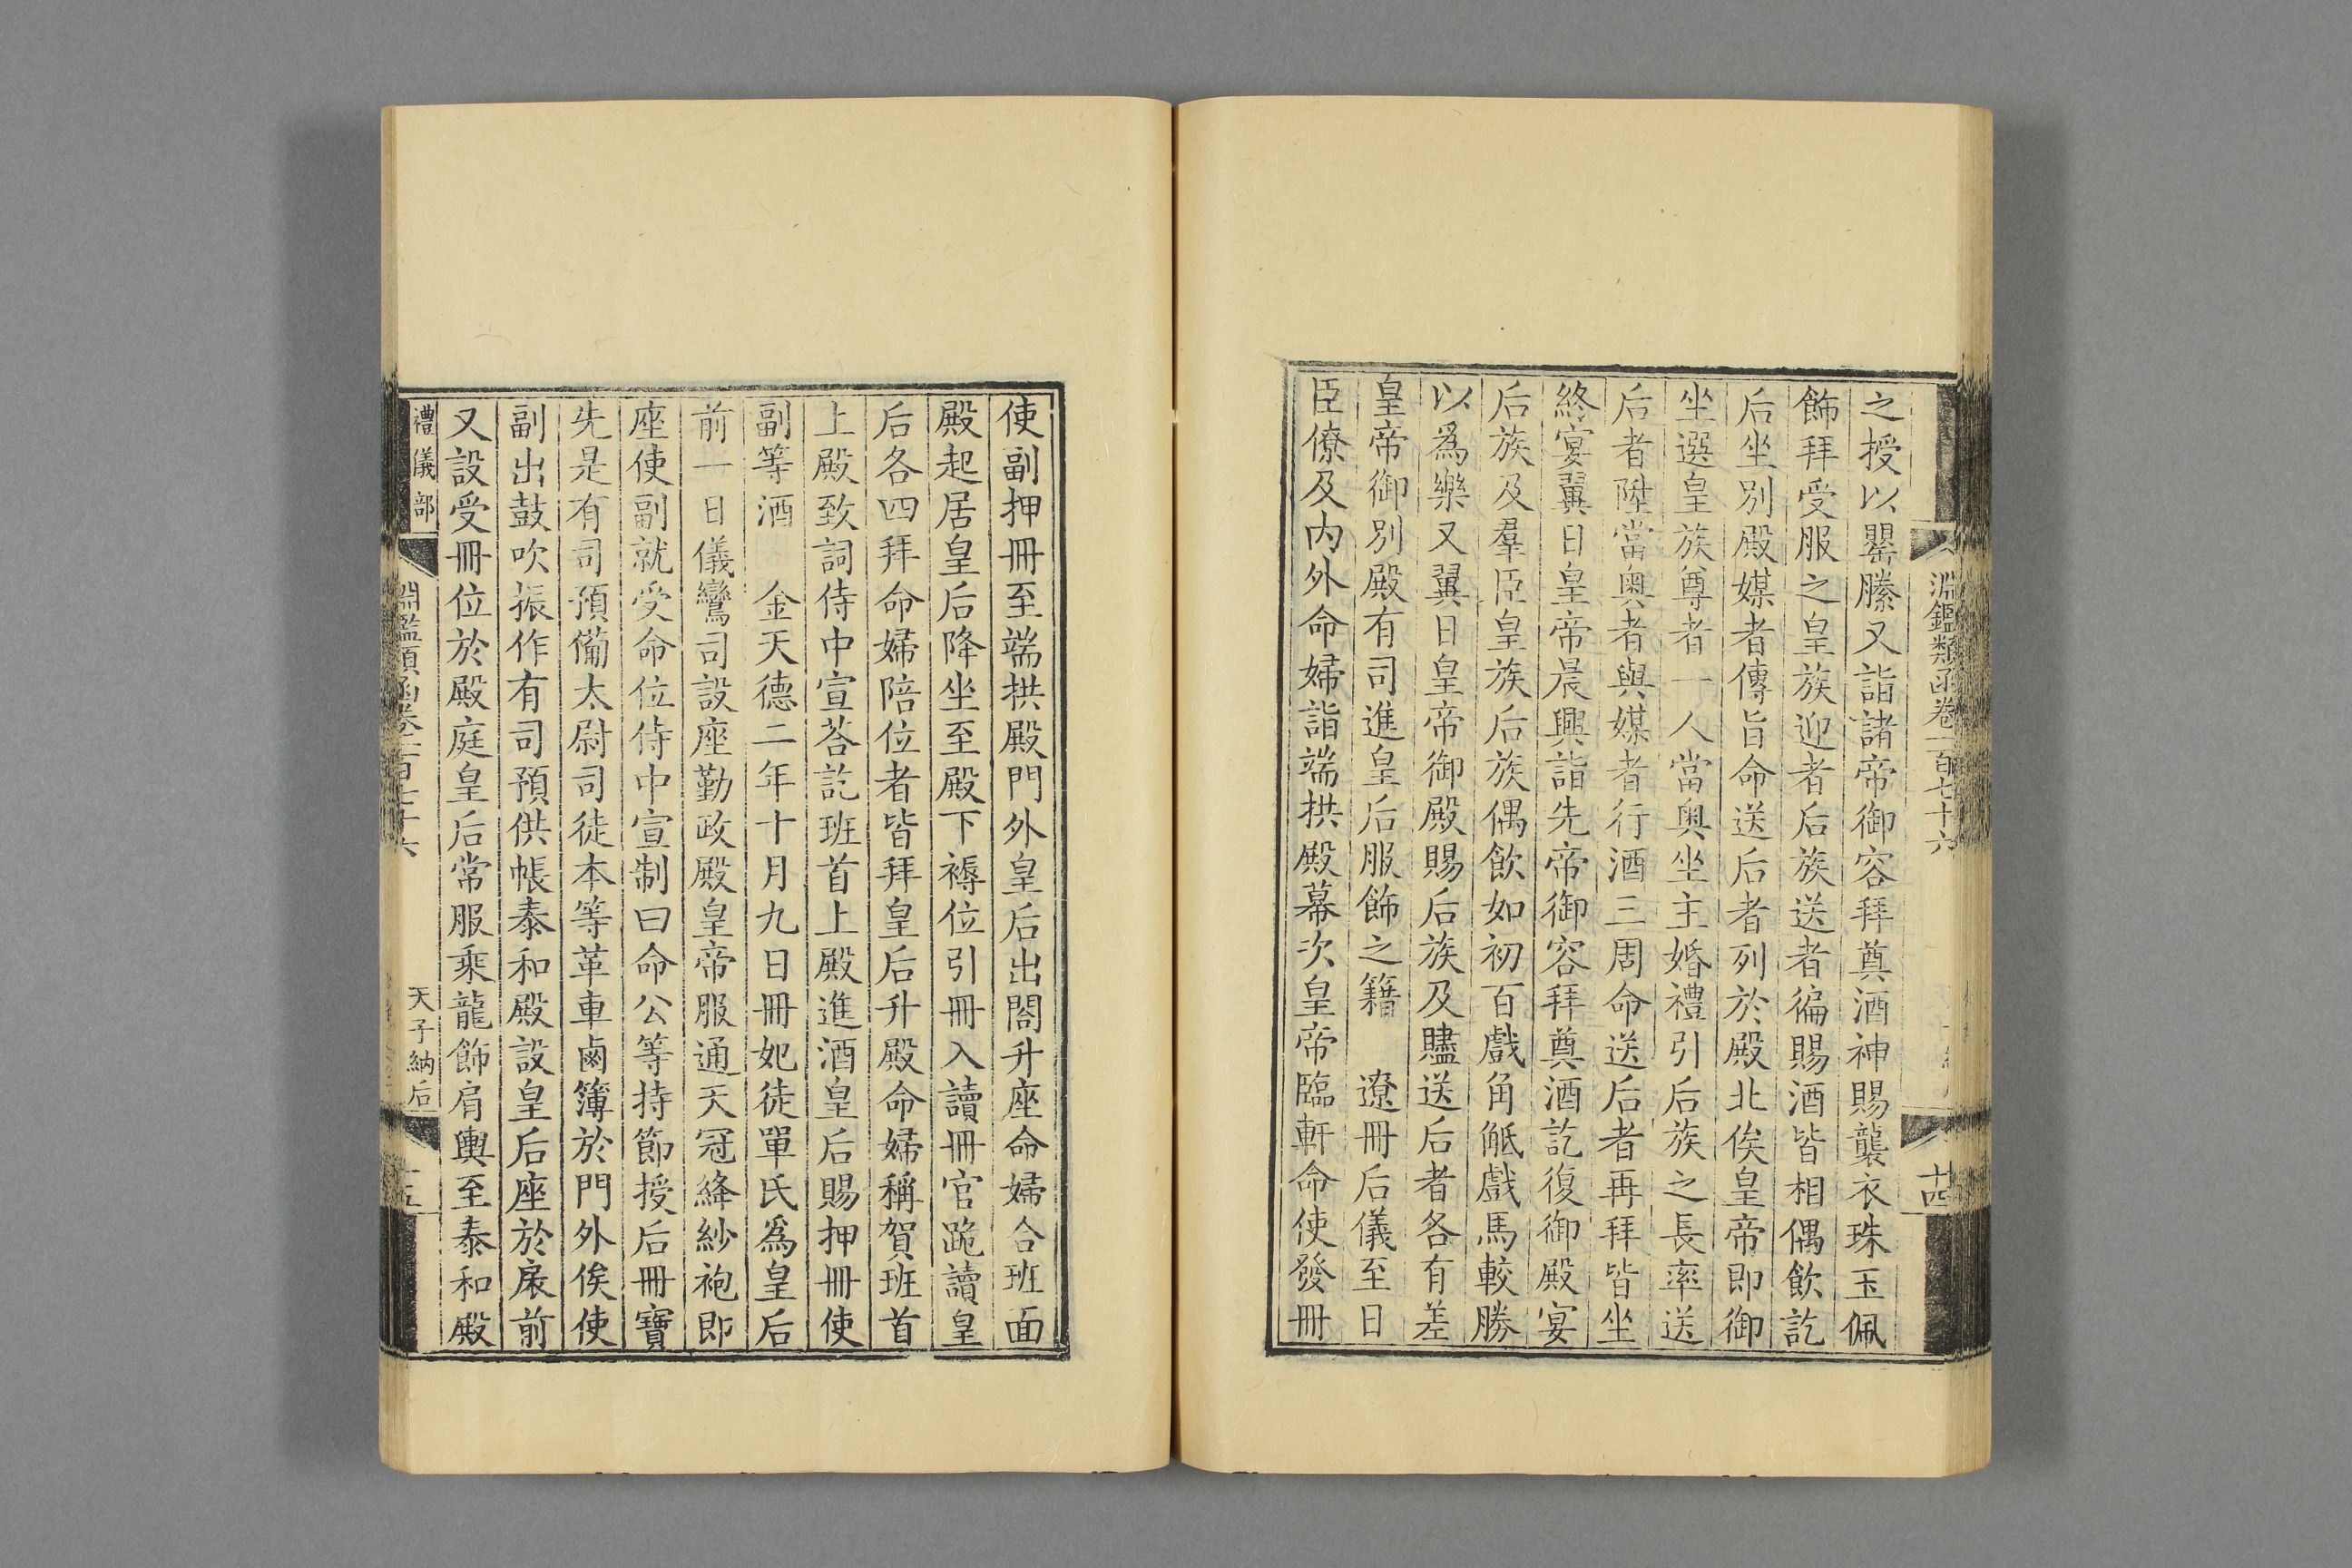 淵鑑類函卷一百七十六
十四
之授以罌縢又詣諸帝御容拜奠酒神賜襲衣珠玉佩
飾拜受服之皇族迎者后族送者徧賜酒皆相偶飲訖
后坐別殿媒者傳旨命送后者列於殿北俟皇帝即御
坐選皇族尊者一人當奥坐主婚禮引后族之長率送
后者陞當奥者與媒者行酒三周命送后者再拜皆坐
終宴翼日皇帝晨興詣先帝御容拜奠酒訖復御殿宴
后族及羣臣皇族后族偶飲如初百戲角觝戲馬較勝
以爲樂又翼日皇帝御殿賜后族及贐送后者各有差
皇帝御別殿有司進皇后服飾之籍　遼冊后儀至日
臣僚及内外命婦詣端拱殿幕次皇帝臨軒命使發冊
使副押冊至端拱殿門外皇后出閤升座命婦合班面
殿起居皇后降坐至殿下褥位引冊入讀冊官跪讀皇
后各四拜命婦陪位者皆拜皇后升殿命婦稱賀班首
上殿致詞侍中宣荅訖班首上殿進酒皇后賜押冊使
副等酒　金天德二年十月九日冊妃徒單氏爲皇后
前一日儀鸞司設座勤政殿皇帝服通天冠絳紗袍即
座使副就受命位侍中宣制曰命公等持節授后冊寶
先是有司預備太尉司徒本等革車鹵簿於門外俟使
副出鼓吹振作有司預供帳泰和殿設皇后座於扆前
又設受冊位於殿庭皇后常服乘龍飾肩輿至泰和殿
禮儀部
淵鑑類函卷一百七十六
天子納后
十五